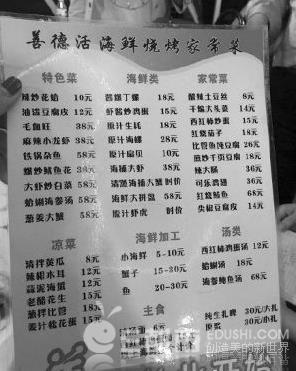 善德活海鲜烧烤家常菜
特色菜
辣炒花蛤 10元
油泼豆腐皮 12元
毛血旺 38元
麻辣小龙虾 38元
铁锅杂鱼 58元
爆炒鱿鱼花 38元
大虾炒白菜 58元
蛤蜊海参汤 58元
葱姜大蟹 58元
海鲜类
酱爆丁螺 18元
虾酱炒鸡蛋 15元
原汁生蚝 18元
原汁海螺 28元
原汁扇贝 10元
海捕大虾 38元
清蒸海捕大蟹 时价
海鲜大拼盘 58元
原汁虾虎 时价
家常菜
酸辣土豆丝 8元
干煸大头菜 14元
西红柿炒蛋 15元
红烧茄子 18元
比管鱼炖豆腐 26元
煎炒千页豆腐 18元
辣大肠 36元
可乐鸡翅 36元
红烧鲅鱼 68元
尖椒豆腐皮 14元
凉菜
清拌黄瓜 8元
辣根木耳 12元
蒜泥海蜇 12元
老醋花生 15元
温拌比管 18元
姜汁松花蛋 15元
海鲜加工
小海鲜 5-10元
蟹子 15-30元
鱼 20-30元
主食
汤类
西红柿鸡蛋汤 12元
蛤蜊汤 18元
海参鲍鱼汤 68元
纯生扎啤 30元/大扎
原浆 30元/小扎
EDUSHI.COM
创造美的新世界